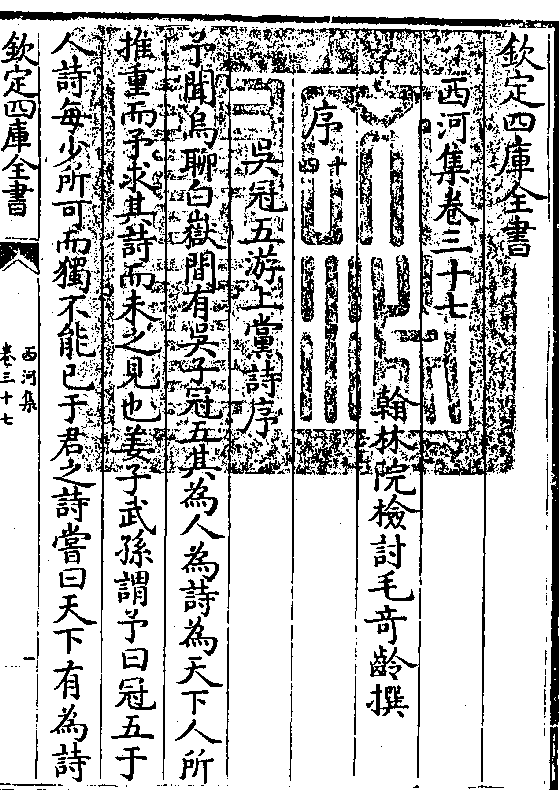 欽定四庫全書
西河集卷三十七
翰林院檢討毛奇齡撰
序十四
吳冠五游上黨詩序
予聞烏聊白嶽間有吳子冠五其為人為詩為天下人所
推重而予求其詩而未之見也姜子武孫謂予曰冠五于
人詩每少所可而獨不能已于君之詩嘗曰天下有為詩
欽定四庫全書
西河集
卷三十七
一